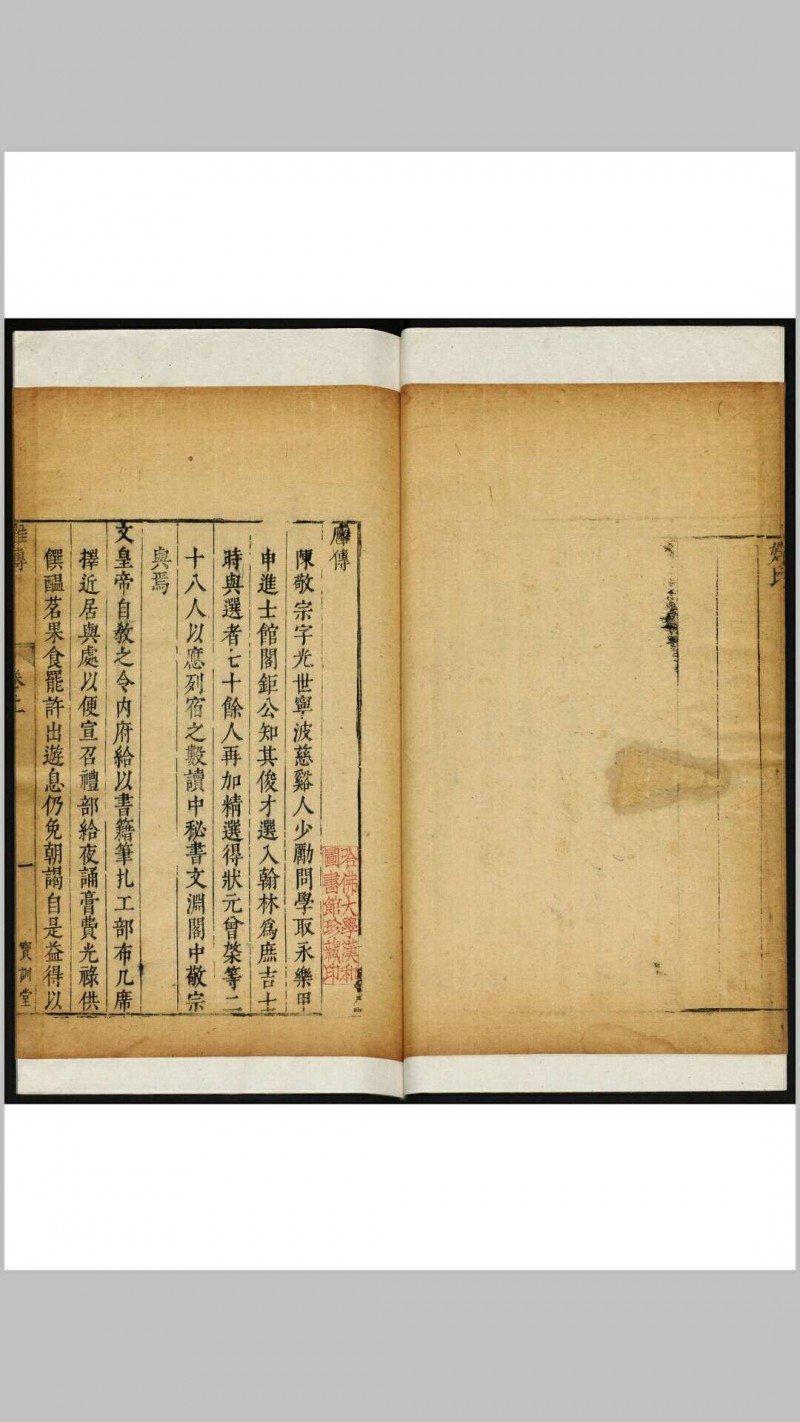 姚氏
傳
陳敬宗字光世寧波慈谿人少勵問學取永樂甲
申進士館閣鉅公知其俊才選入翰林為庶吉士
時與選者七十餘人再加精選得狀元曾棨等二
十八人以應列宿之數讀中秘書文淵閣中敬宗
與焉
文皇帝自教之令內府給以書籍筆扎工部布几席
擇近居與處以便宣召禮部給夜誦膏費光祿供
饌醞茗果食罷許出遊息仍免朝謁自是益得以
傳
卷二
一
寶訓堂
哈佛大學漢和
圖書館珍藏印